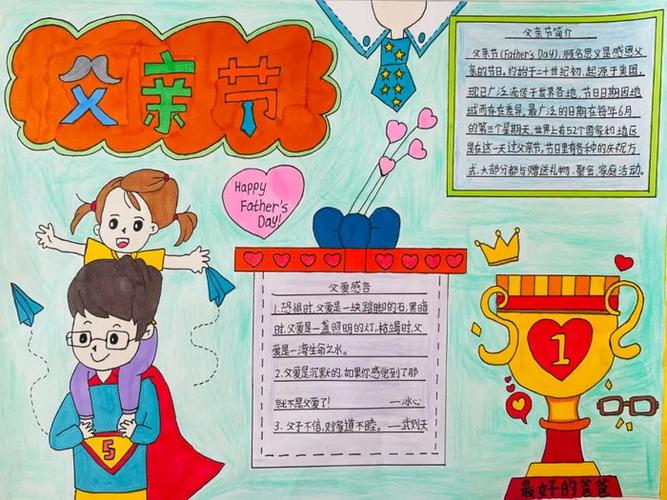 父亲节
父亲节简介
父亲节(Father's Day),顾名思义是感恩父
亲的节日。约始于二十世纪初,起源于美国,
现已广泛流传于世界各地,节日日期因地
域而存在差异。最广泛的日期在每年6月
的第三个星期天,世界上有52个国家和地区
是在这一天过父亲节。节日里有各种的庆祝方
式,大部分都与赠送礼物、聚会、家庭活动。
Happy
Father's
Day!
父爱感言
1.恐惧时,父爱是一块踏脚的石,黑暗
时,父爱是一盏照明的灯,枯竭时,父
爱是一湾生命之水。
2.父爱是沉默的,如果你感觉到了那
就不是父爱了! —冰心
3.父子不信,则家道不睦。—武则天
5
1
最好的爸爸